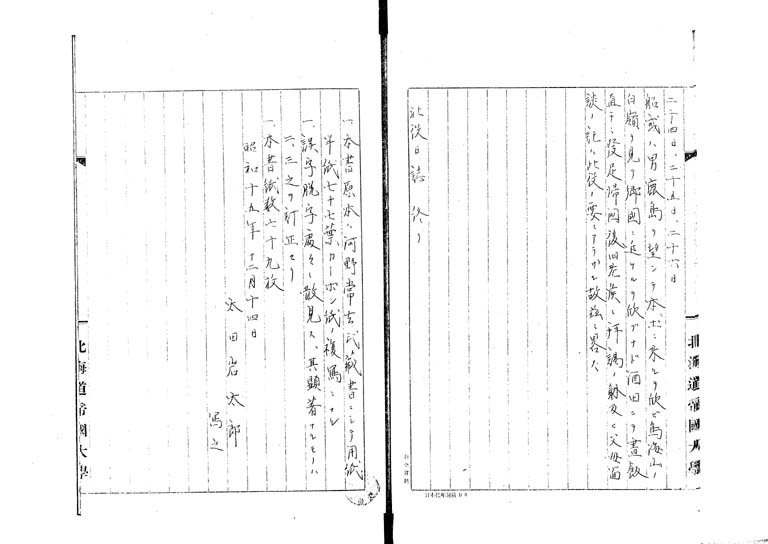 二十四日、二十五日、二十六日
船或ハ男鹿島ヲ望ンテ本 ニ来ルヲ欣ビ鳥海山ノ
白嶺ヲ見テ郷国ニ近ケルヲ欣ブナド酒田ニテ昼飯
直チニ発足帰国後旧老侯ニ拝謁ノ 父母面
談ノ記ハ北役ノ要ニアラサル故茲ニ畧ス
北役日誌 終リ
北海道帝國大學
日本標準規格B4
一、本書原本ハ河野常吉氏ノ蔵書ニシテ用紙
半紙七十七葉カーボン紙ノ複寫ナル
一、誤字脱字處々ニ散見ス、其顕著ナルモノハ
二、三之ヲ訂正セリ
一、本書紙数七十九枚
昭和十五年十二月十四日
太田岩太郎
寫之
北海道帝國大學